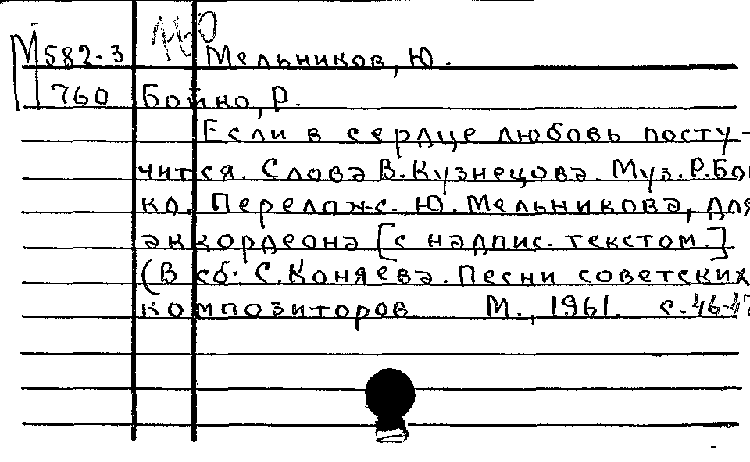 М582-3 Мельников, Ю.
760 Бойко, Р.
Если в сердце любовь посту-
чится. Слова В.Кузнецова. Муз. Р.Бой
ко. Перелож. Ю.Мельникова, для
аккордеона [с надпис. текстом.]
(В сб. С.Коняева. Песни советских
композиторов М., 1961. с.46-47